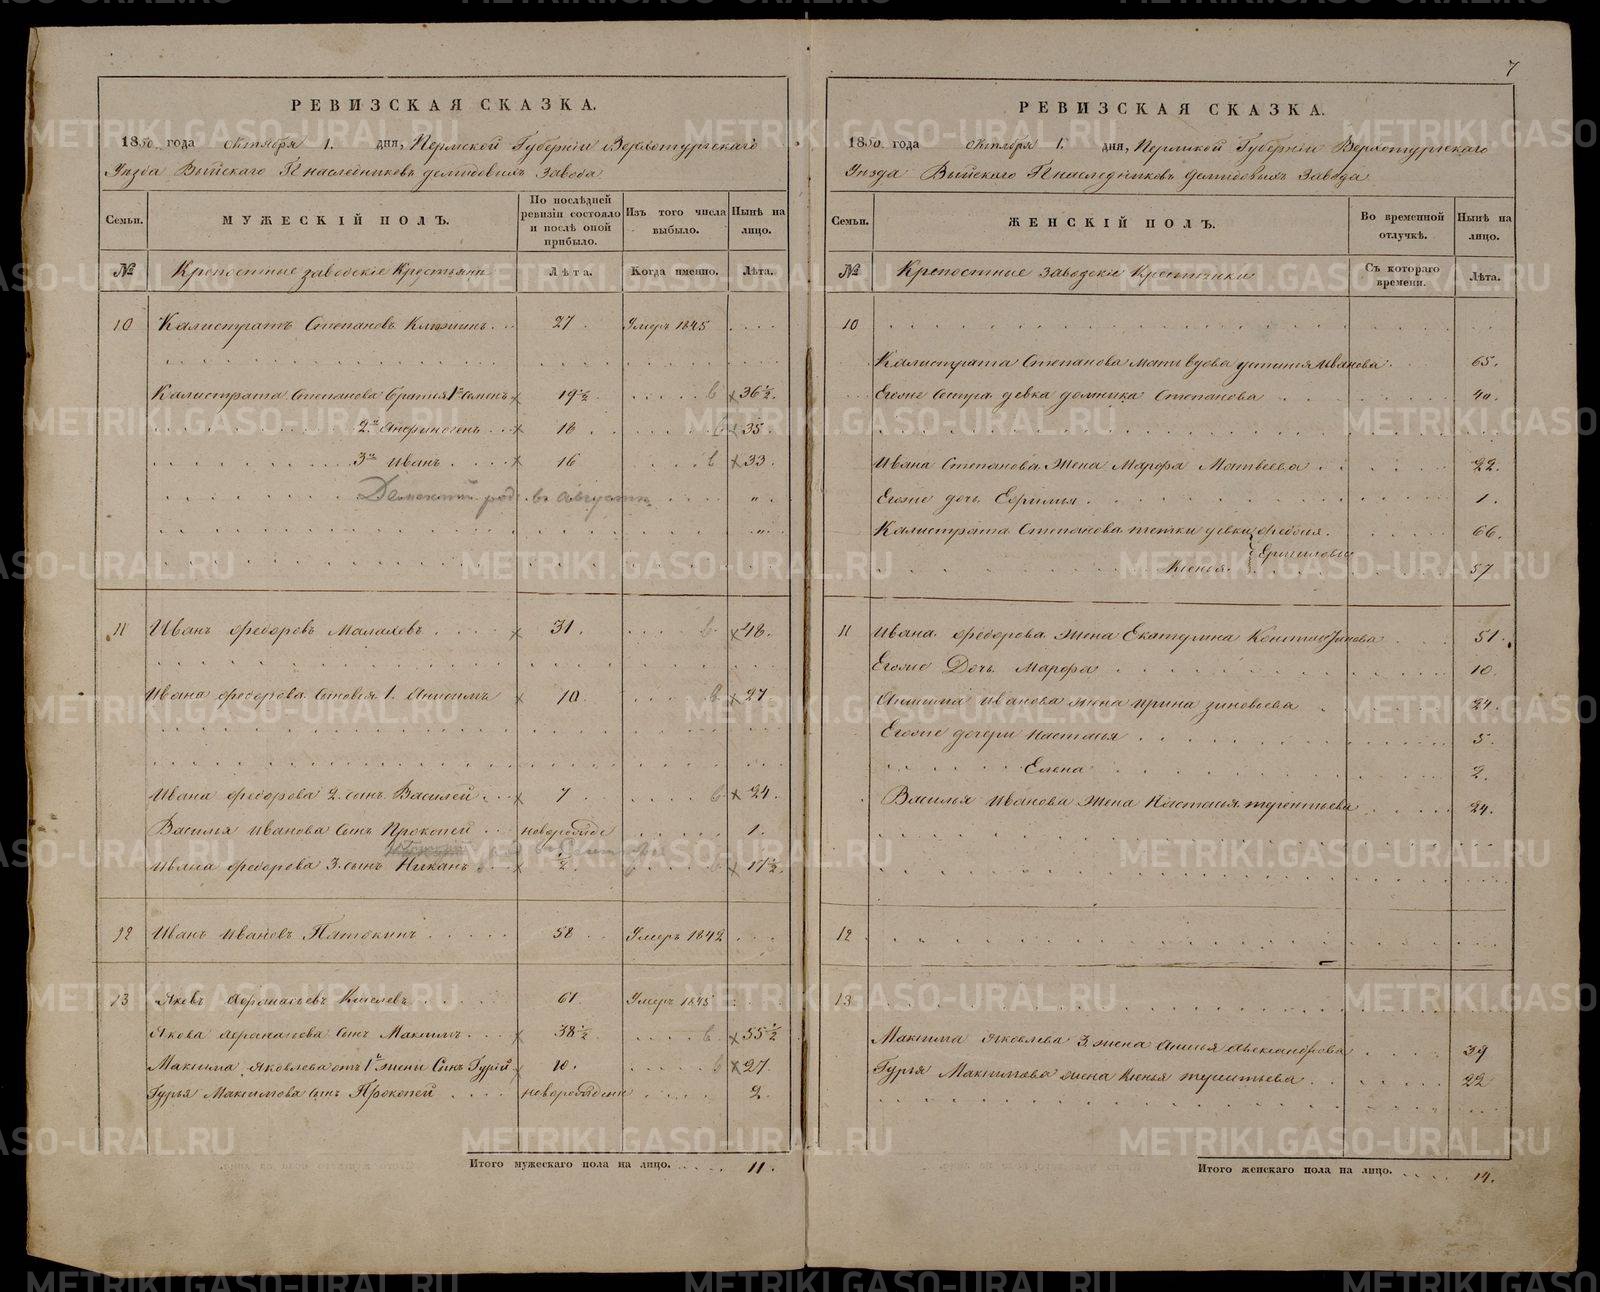 7
РЕВИЗСКАЯ СКАЗКА.
1850 года октября 1. дня, Пермской Губерніи Верхотурскаго
Уѣзда Выйскаго Гг наследниковъ демидовыхъ Завода
Семьи.
МУЖЕСКІЙ ПОЛЪ.
По послѣдней ревизіи состояло и послѣ оной прибыло.
Изъ того числа выбыло.
Нынѣ на лицо.
№
Крепостные заводскіе Крестьяне
Лѣта.
Когда именно.
Лѣта.
10 Калистратъ Степановъ 27 Умеръ 1845
Калистрата Степанова братья 1й 19½ 36½
2й Анфиногенъ 18 35
3й Иванъ 16 33
род. въ августе
11 Иванъ Федоровъ Малаховъ 31. 48.
Ивана Федорова сыновья 1. 10 27
Ивана Федорова 2. сынъ Василей 7 24.
Василья Иванова сынъ Прокопей 1.
Ивана Федорова 3. сынъ ½ 17½
12 Иванъ Ивановъ Патокинъ 58 Умеръ 1842
13 Яковъ Афонасьевъ Киселевъ 61. Умеръ 1845
Якова Афонасова сынъ Максимъ 38½ 55½
Максима Яковлева отъ 1й жены сынъ Гурій 10. 27.
Гурья Максимова сынъ Прокопей 2.
Итого мужескаго пола на лицо. 11.
РЕВИЗСКАЯ СКАЗКА.
1850 года октября 1. дня, Пермской Губерніи Верхотурскаго
Уѣзда Выйскаго Гг наследниковъ демидовыхъ Завода
Семьи.
ЖЕНСКІЙ ПОЛЪ.
Во временной отлучкѣ.
Нынѣ на лицо.
№
Крепостные Заводскіе Крестьянки
Съ котораго времени.
Лѣта.
10
Калистрата Степанова мать вдова устинья Иванова 65.
Егоже Сестра девка домника Степанова 40.
Ивана Степанова жена Марфа Матвеева 22.
Егоже дочь Ефимья 1.
Калистрата Степанова тетки девки Федосья. 66.
Ермиловы
Ксенья. 57
11 Ивана Федорова жена Екатерина Константинова 51.
Егоже Дочь Марфа 10
Иванова жена ирина зиновьева 24.
Егоже дочери Настасья 5.
Елена 2.
Василья Иванова жена Настасья терентьева 24.
12
13
Максима Яковлева 2. жена Анисья Александрова 39
Гурья Максимова жена Ксенья терентьева 22
Итого женскаго пола на лицо. 14.
METRIKI.GASO-URAL.RU